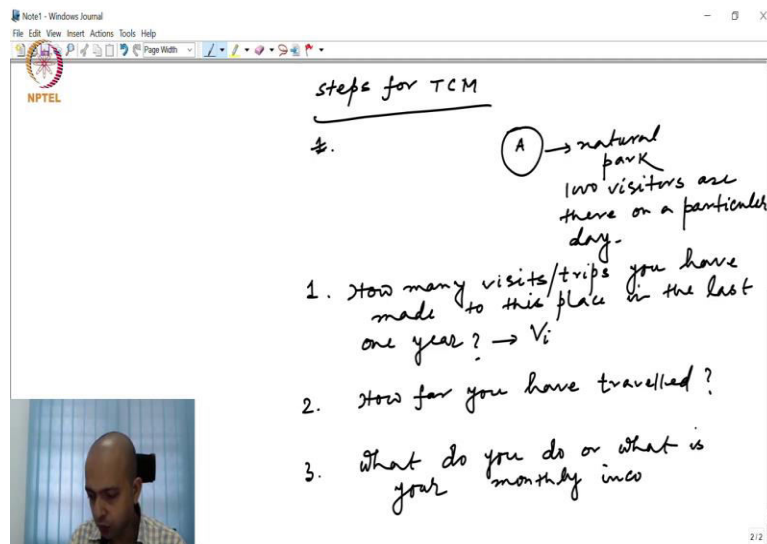 Note1 - Windows Journal
File Edit View Insert Actions Tools Help
Page Width
NPTEL
steps for TCM
1.
A → natural
park
100 visitors are
there on a particular
day.
1. How many visits/trips you have
made to this place in the last
one year? → Vi
2. How far you have travelled?
3. What do you do or what is
your monthly inco
2/2